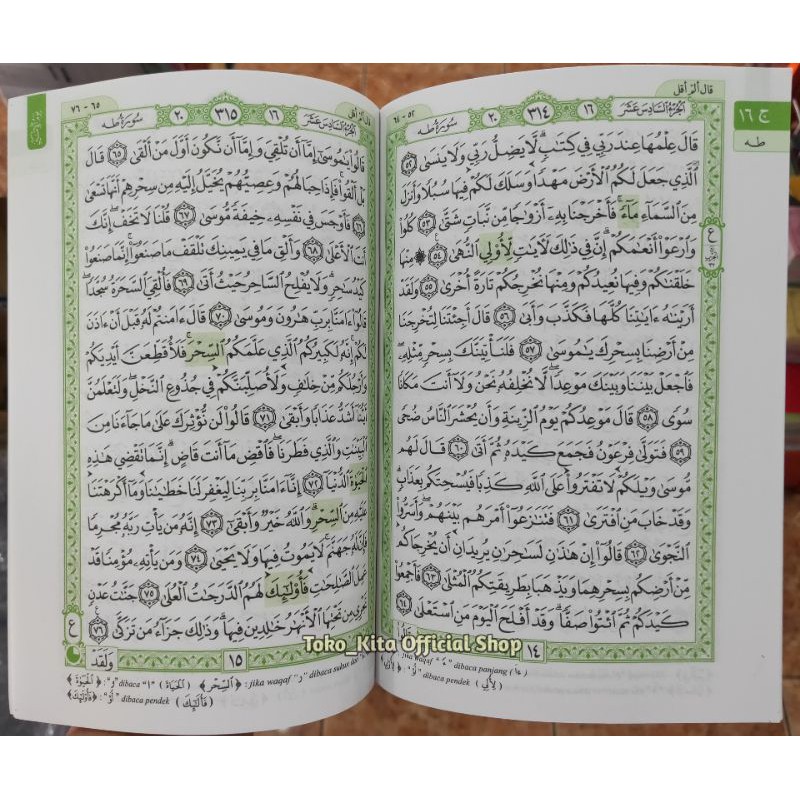 قال ألم أقل
ج ١٦
طه
الجزء السادس عشر
١٦
٣١٤
٢٠
سورة طه
٥٢ - ٦٤
قَالَ عِلْمُهَا عِندَ رَبِّي فِي كِتَابٍ لَّا يَضِلُّ رَبِّي وَلَا يَنسَى ﴿٥٢﴾
الَّذِي جَعَلَ لَكُمُ الْأَرْضَ مَهْدًا وَسَلَكَ لَكُمْ فِيهَا سُبُلًا وَأَنزَلَ
مِنَ السَّمَاءِ مَاءً فَأَخْرَجْنَا بِهِ أَزْوَاجًا مِّن نَّبَاتٍ شَتَّى ﴿٥٣﴾ كُلُوا
وَارْعَوْا أَنْعَامَكُمْ إِنَّ فِي ذَٰلِكَ لَآيَاتٍ لِّأُولِي النُّهَى ﴿٥٤﴾ ۞ مِنْهَا
خَلَقْنَاكُمْ وَفِيهَا نُعِيدُكُمْ وَمِنْهَا نُخْرِجُكُمْ تَارَةً أُخْرَى ﴿٥٥﴾ وَلَقَدْ
أَرَيْنَاهُ ءَايَاتِنَا كُلَّهَا فَكَذَّبَ وَأَبَى ﴿٥٦﴾ قَالَ أَجِئْتَنَا لِتُخْرِجَنَا
مِنْ أَرْضِنَا بِسِحْرِكَ يَامُوسَى ﴿٥٧﴾ فَلَنَأْتِيَنَّكَ بِسِحْرٍ مِّثْلِهِ
فَاجْعَلْ بَيْنَنَا وَبَيْنَكَ مَوْعِدًا لَّا نُخْلِفُهُ نَحْنُ وَلَا أَنتَ مَكَانًا
سُوًى ﴿٥٨﴾ قَالَ مَوْعِدُكُمْ يَوْمُ الزِّينَةِ وَأَن يُحْشَرَ النَّاسُ ضُحًى
﴿٥٩﴾ فَتَوَلَّى فِرْعَوْنُ فَجَمَعَ كَيْدَهُ ثُمَّ أَتَى ﴿٦٠﴾ قَالَ لَهُم
مُّوسَى وَيْلَكُمْ لَا تَفْتَرُوا عَلَى اللَّهِ كَذِبًا فَيُسْحِتَكُم بِعَذَابٍ
وَقَدْ خَابَ مَنِ افْتَرَى ﴿٦١﴾ فَتَنَازَعُوا أَمْرَهُم بَيْنَهُمْ وَأَسَرُّوا
النَّجْوَى ﴿٦٢﴾ قَالُوا إِنْ هَٰذَانِ لَسَاحِرَانِ يُرِيدَانِ أَن يُخْرِجَاكُم
مِّنْ أَرْضِكُم بِسِحْرِهِمَا وَيَذْهَبَا بِطَرِيقَتِكُمُ الْمُثْلَى ﴿٦٣﴾ فَأَجْمِعُوا
كَيْدَكُمْ ثُمَّ ائْتُوا صَفًّا وَقَدْ أَفْلَحَ الْيَوْمَ مَنِ اسْتَعْلَى ﴿٦٤﴾
١٤
jika waqaf "ءً" dibaca panjang (ءا)
"لِأُو": dibaca pendek (لِأُلِي)
قال ألم أقل
الجزء السادس عشر
١٦
٣١٥
٢٠
سورة طه
٦٥ - ٧٦
قَالُوا يَامُوسَى إِمَّا أَن تُلْقِيَ وَإِمَّا أَن نَّكُونَ أَوَّلَ مَنْ أَلْقَى ﴿٦٥﴾ قَالَ
بَلْ أَلْقُوا فَإِذَا حِبَالُهُمْ وَعِصِيُّهُمْ يُخَيَّلُ إِلَيْهِ مِن سِحْرِهِمْ أَنَّهَا تَسْعَى
﴿٦٦﴾ فَأَوْجَسَ فِي نَفْسِهِ خِيفَةً مُّوسَى ﴿٦٧﴾ قُلْنَا لَا تَخَفْ إِنَّكَ
أَنتَ الْأَعْلَى ﴿٦٨﴾ وَأَلْقِ مَا فِي يَمِينِكَ تَلْقَفْ مَا صَنَعُوا إِنَّمَا صَنَعُوا
كَيْدُ سَاحِرٍ وَلَا يُفْلِحُ السَّاحِرُ حَيْثُ أَتَى ﴿٦٩﴾ فَأُلْقِيَ السَّحَرَةُ سُجَّدًا
قَالُوا ءَامَنَّا بِرَبِّ هَارُونَ وَمُوسَى ﴿٧٠﴾ قَالَ ءَامَنتُمْ لَهُ قَبْلَ أَنْ ءَاذَنَ
لَكُمْ إِنَّهُ لَكَبِيرُكُمُ الَّذِي عَلَّمَكُمُ السِّحْرَ فَلَأُقَطِّعَنَّ أَيْدِيَكُمْ
وَأَرْجُلَكُم مِّنْ خِلَافٍ وَلَأُصَلِّبَنَّكُمْ فِي جُذُوعِ النَّخْلِ وَلَتَعْلَمُنَّ
أَيُّنَا أَشَدُّ عَذَابًا وَأَبْقَى ﴿٧١﴾ قَالُوا لَن نُّؤْثِرَكَ عَلَى مَا جَاءَنَا مِنَ
الْبَيِّنَاتِ وَالَّذِي فَطَرَنَا فَاقْضِ مَا أَنتَ قَاضٍ إِنَّمَا تَقْضِي هَٰذِهِ
الْحَيَوٰةَ الدُّنْيَا ﴿٧٢﴾ إِنَّا ءَامَنَّا بِرَبِّنَا لِيَغْفِرَ لَنَا خَطَايَانَا وَمَا أَكْرَهْتَنَا
عَلَيْهِ مِنَ السِّحْرِ وَاللَّهُ خَيْرٌ وَأَبْقَى ﴿٧٣﴾ إِنَّهُ مَن يَأْتِ رَبَّهُ مُجْرِمًا
فَإِنَّ لَهُ جَهَنَّمَ لَا يَمُوتُ فِيهَا وَلَا يَحْيَى ﴿٧٤﴾ وَمَن يَأْتِهِ مُؤْمِنًا قَدْ
عَمِلَ الصَّالِحَاتِ فَأُولَٰئِكَ لَهُمُ الدَّرَجَاتُ الْعُلَى ﴿٧٥﴾ جَنَّاتُ عَدْنٍ
تَجْرِي مِن تَحْتِهَا الْأَنْهَارُ خَالِدِينَ فِيهَا وَذَٰلِكَ جَزَاءُ مَن تَزَكَّى ﴿٧٦﴾
وَلَقَدْ
١٥
﴿الْحَيَوٰةَ﴾ : "و" dibaca "ا" (الْحَيَاةَ) ﴿السِّحْرِ﴾ : jika waqaf "ر" dibaca sukun dan
﴿فَأُولَٰئِكَ﴾ : "أُو" dibaca pendek (فَأُلَٰئِكَ)
Toko_Kita Official Shop